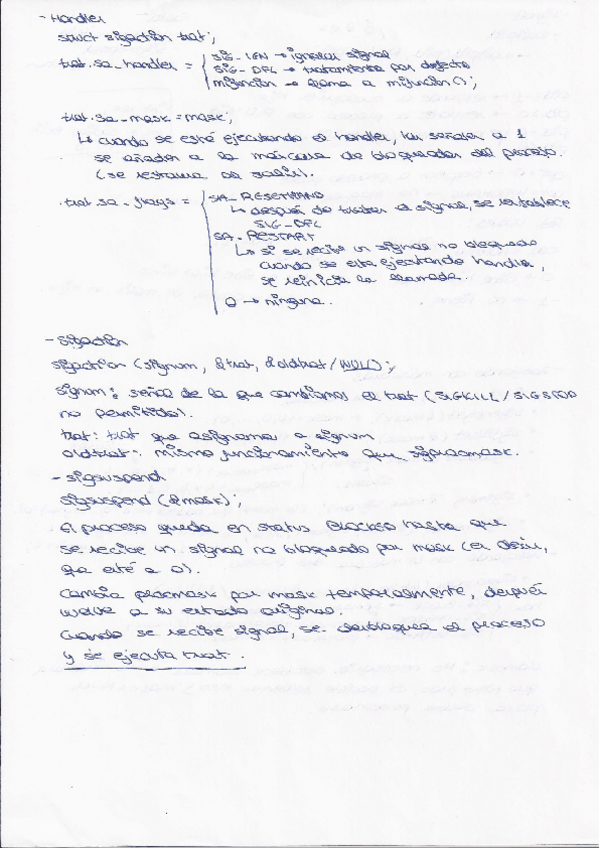 - Handler
struct sigaction trat;
trat.sa_handler = { SIG_IGN → ignorar signal
SIG_DFL → tratamiento por defecto
mifunción → llama a mifunción();
trat.sa_mask = mask;
↳ cuando se esté ejecutando el handler, las señales a 1
se añaden a la máscara de bloqueados del proceso.
(se restaura al salir).
trat.sa_flags = { SA_RESETHAND
↳ después de tratar el signal, se restablece
SIG_DFL
SA_RESTART
↳ si se recibe un signal no bloqueado
cuando se está ejecutando handler,
se reinicia la llamada.
0 → ninguna.
- Sigaction
sigaction (signum, &trat, &oldtrat/NULL);
signum: señal de la que cambiamos el trat (SIGKILL/SIGSTOP
no permitido).
trat: trat que asignamos a signum
oldtrat: mismo funcionamiento que sigprocmask.
- sigsuspend
sigsuspend (&mask);
El proceso queda en status Blocked hasta que
se recibe un signal no bloqueado por mask (es decir,
que esté a 0).
Cambia procmask por mask temporalmente, después
vuelve a su estado original.
Cuando se recibe signal, se desbloquea el proceso
y se ejecuta trat.